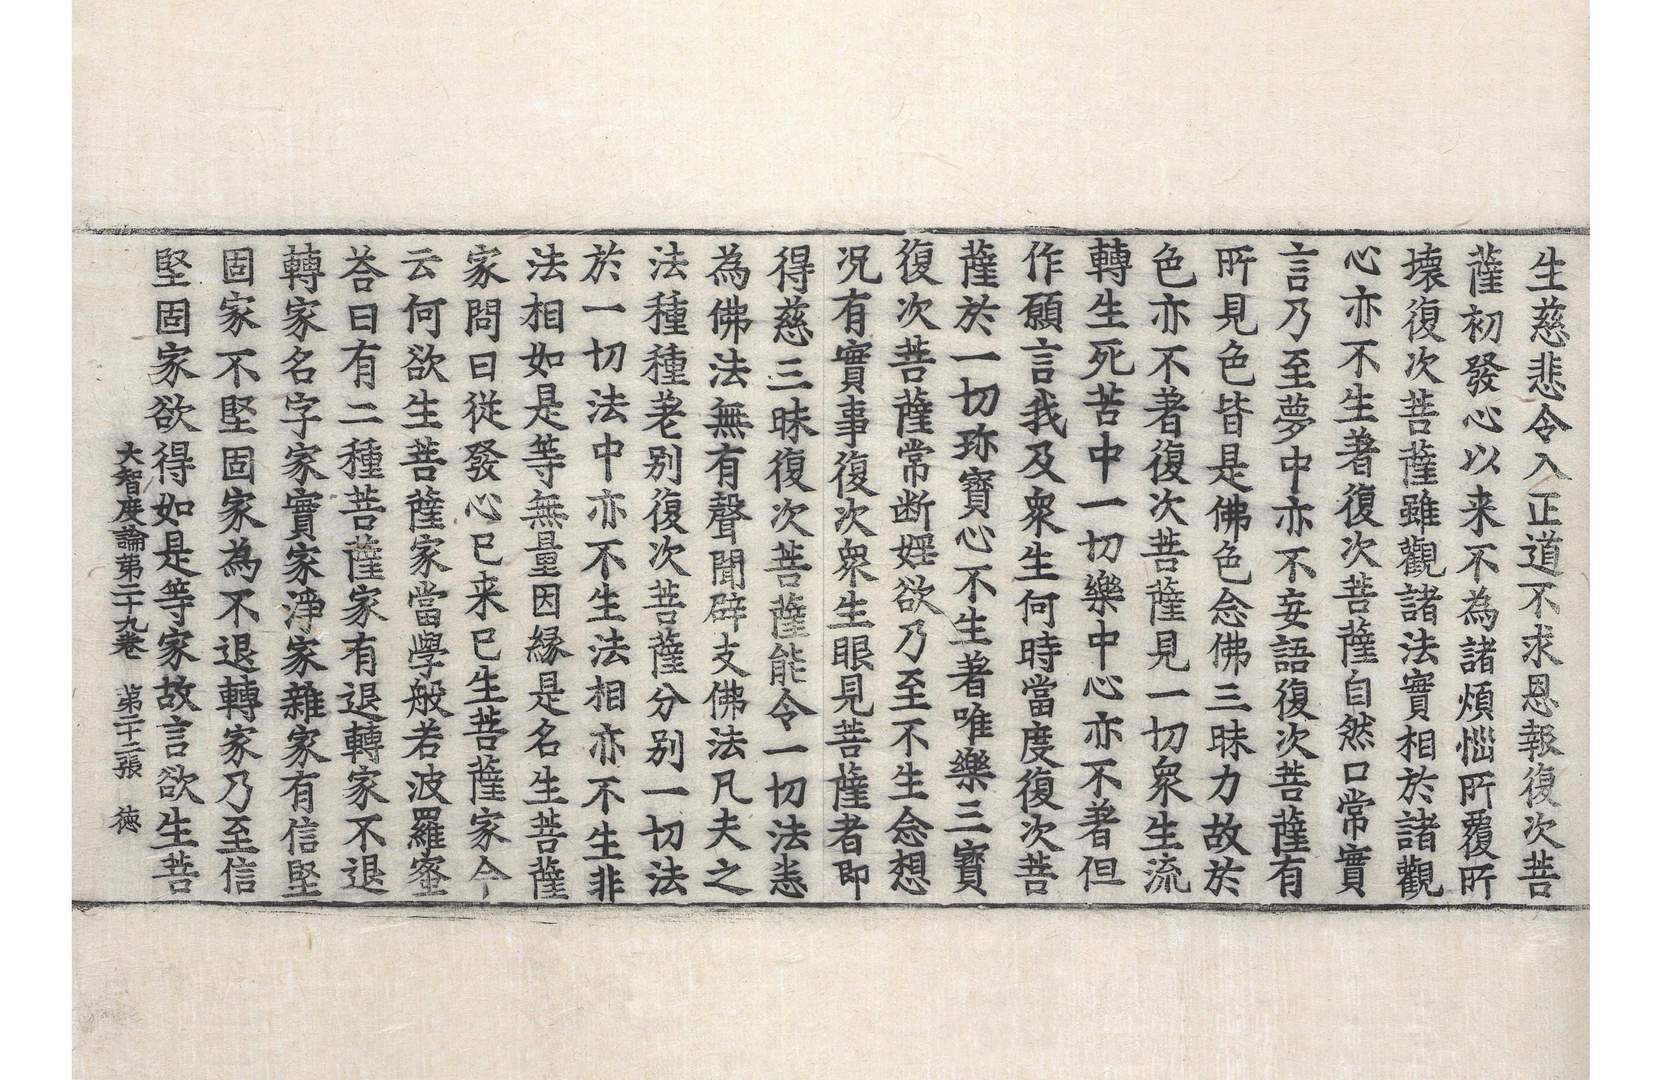 生慈悲令入正道不求恩報復次菩
薩初發心以来不為諸煩惱所覆所
壞復次菩薩雖觀諸法實相於諸觀
心亦不生著復次菩薩自然口常實
言乃至夢中亦不妄語復次菩薩有
所見色皆是佛色念佛三昧力故於
色亦不著復次菩薩見一切衆生流
轉生死苦中一切樂中心亦不著但
作願言我及衆生何時當度復次菩
薩於一切珎寶心不生著唯樂三寶
復次菩薩常断婬欲乃至不生念想
况有實事復次衆生眼見菩薩者即
得慈三昧復次菩薩能令一切法悉
為佛法無有聲聞辟支佛法凡夫之
法種種差別復次菩薩分別一切法
於一切法中亦不生法相亦不生非
法相如是等無量因緣是名生菩薩
家問曰從發心已来已生菩薩家今
云何欲生菩薩家當學般若波羅蜜
荅曰有二種菩薩家有退轉家不退
轉家名字家實家淨家雜家有信堅
固家不堅固家為不退轉家乃至信
堅固家欲得如是等家故言欲生菩
大智度論第二十九卷　第二十二張　徳